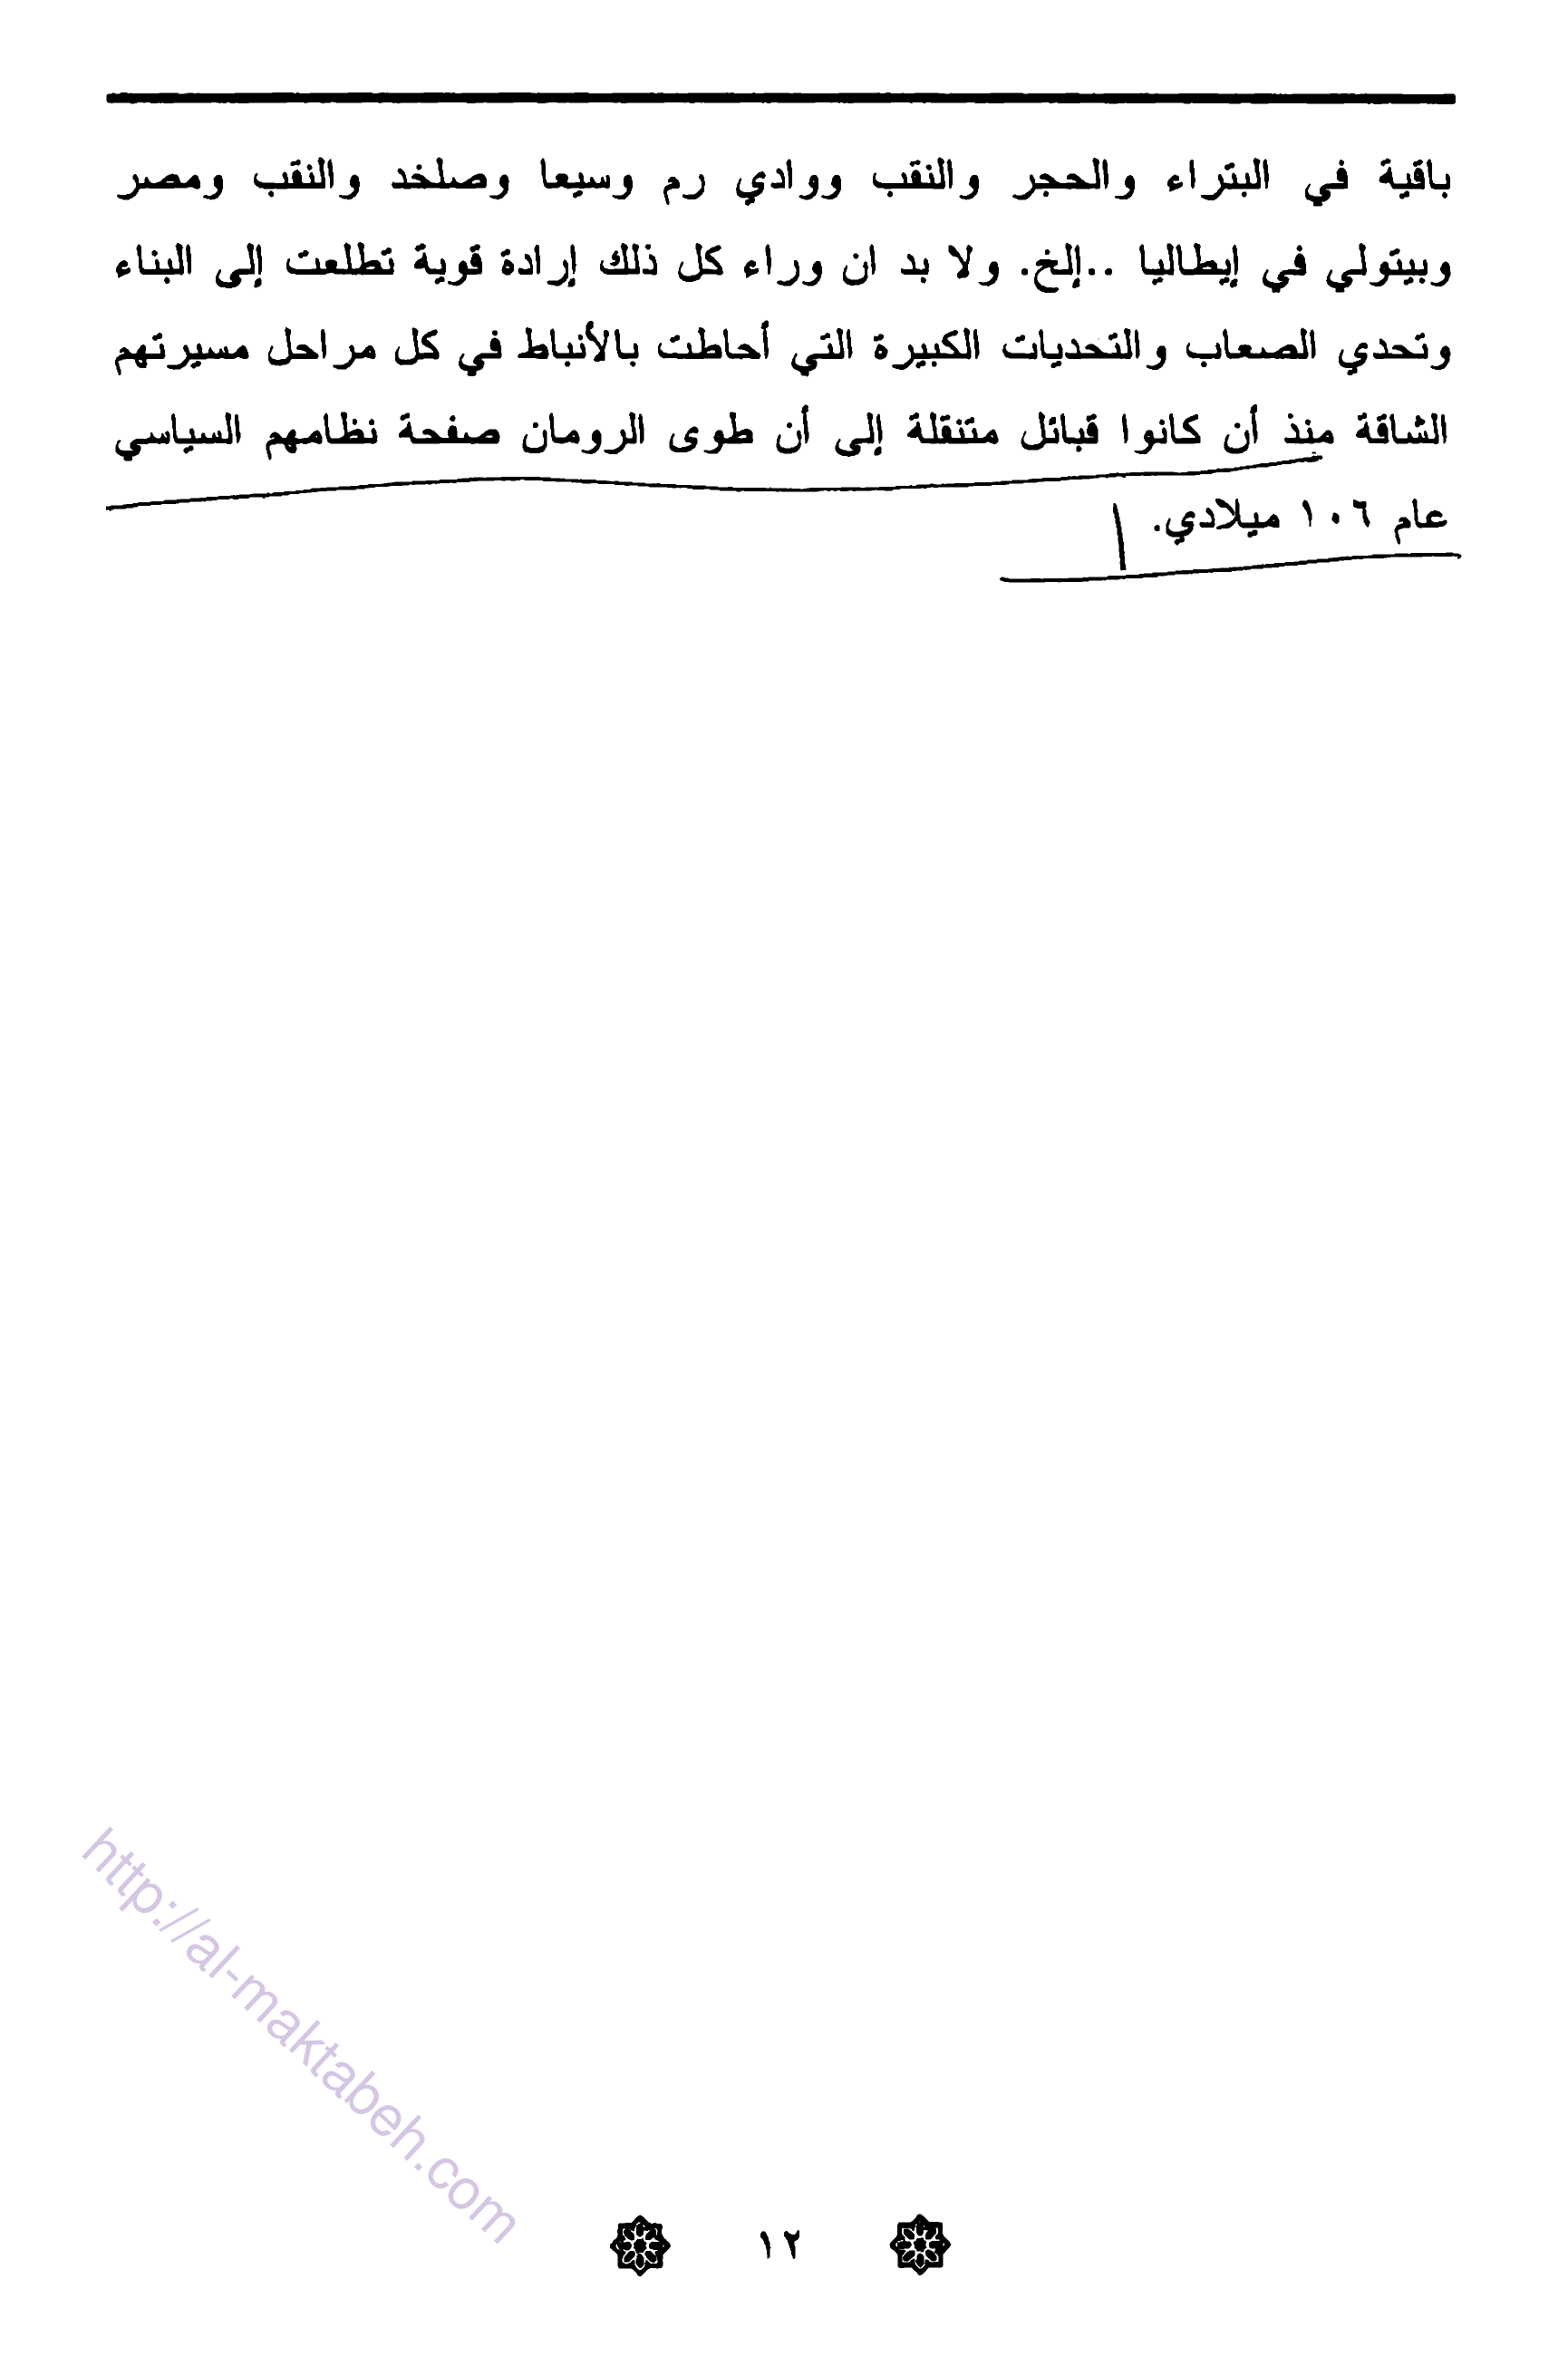 باقية في البتراء والحجر والنقب ووادي رم وسيعا وصلخد والنقب ومصر
وبيتولي في إيطاليا ..إلخ. ولا بد ان وراء كل ذلك إرادة قوية تطلعت إلى البناء
وتحدي الصعاب والتحديات الكبيرة التي أحاطت بالأنباط في كل مراحل مسيرتهم
الشاقة منذ أن كانوا قبائل متنقلة إلى أن طوى الرومان صفحة نظامهم السياسي
عام ١٠٦ ميلادي.
http://al-maktabeh.com
١٢